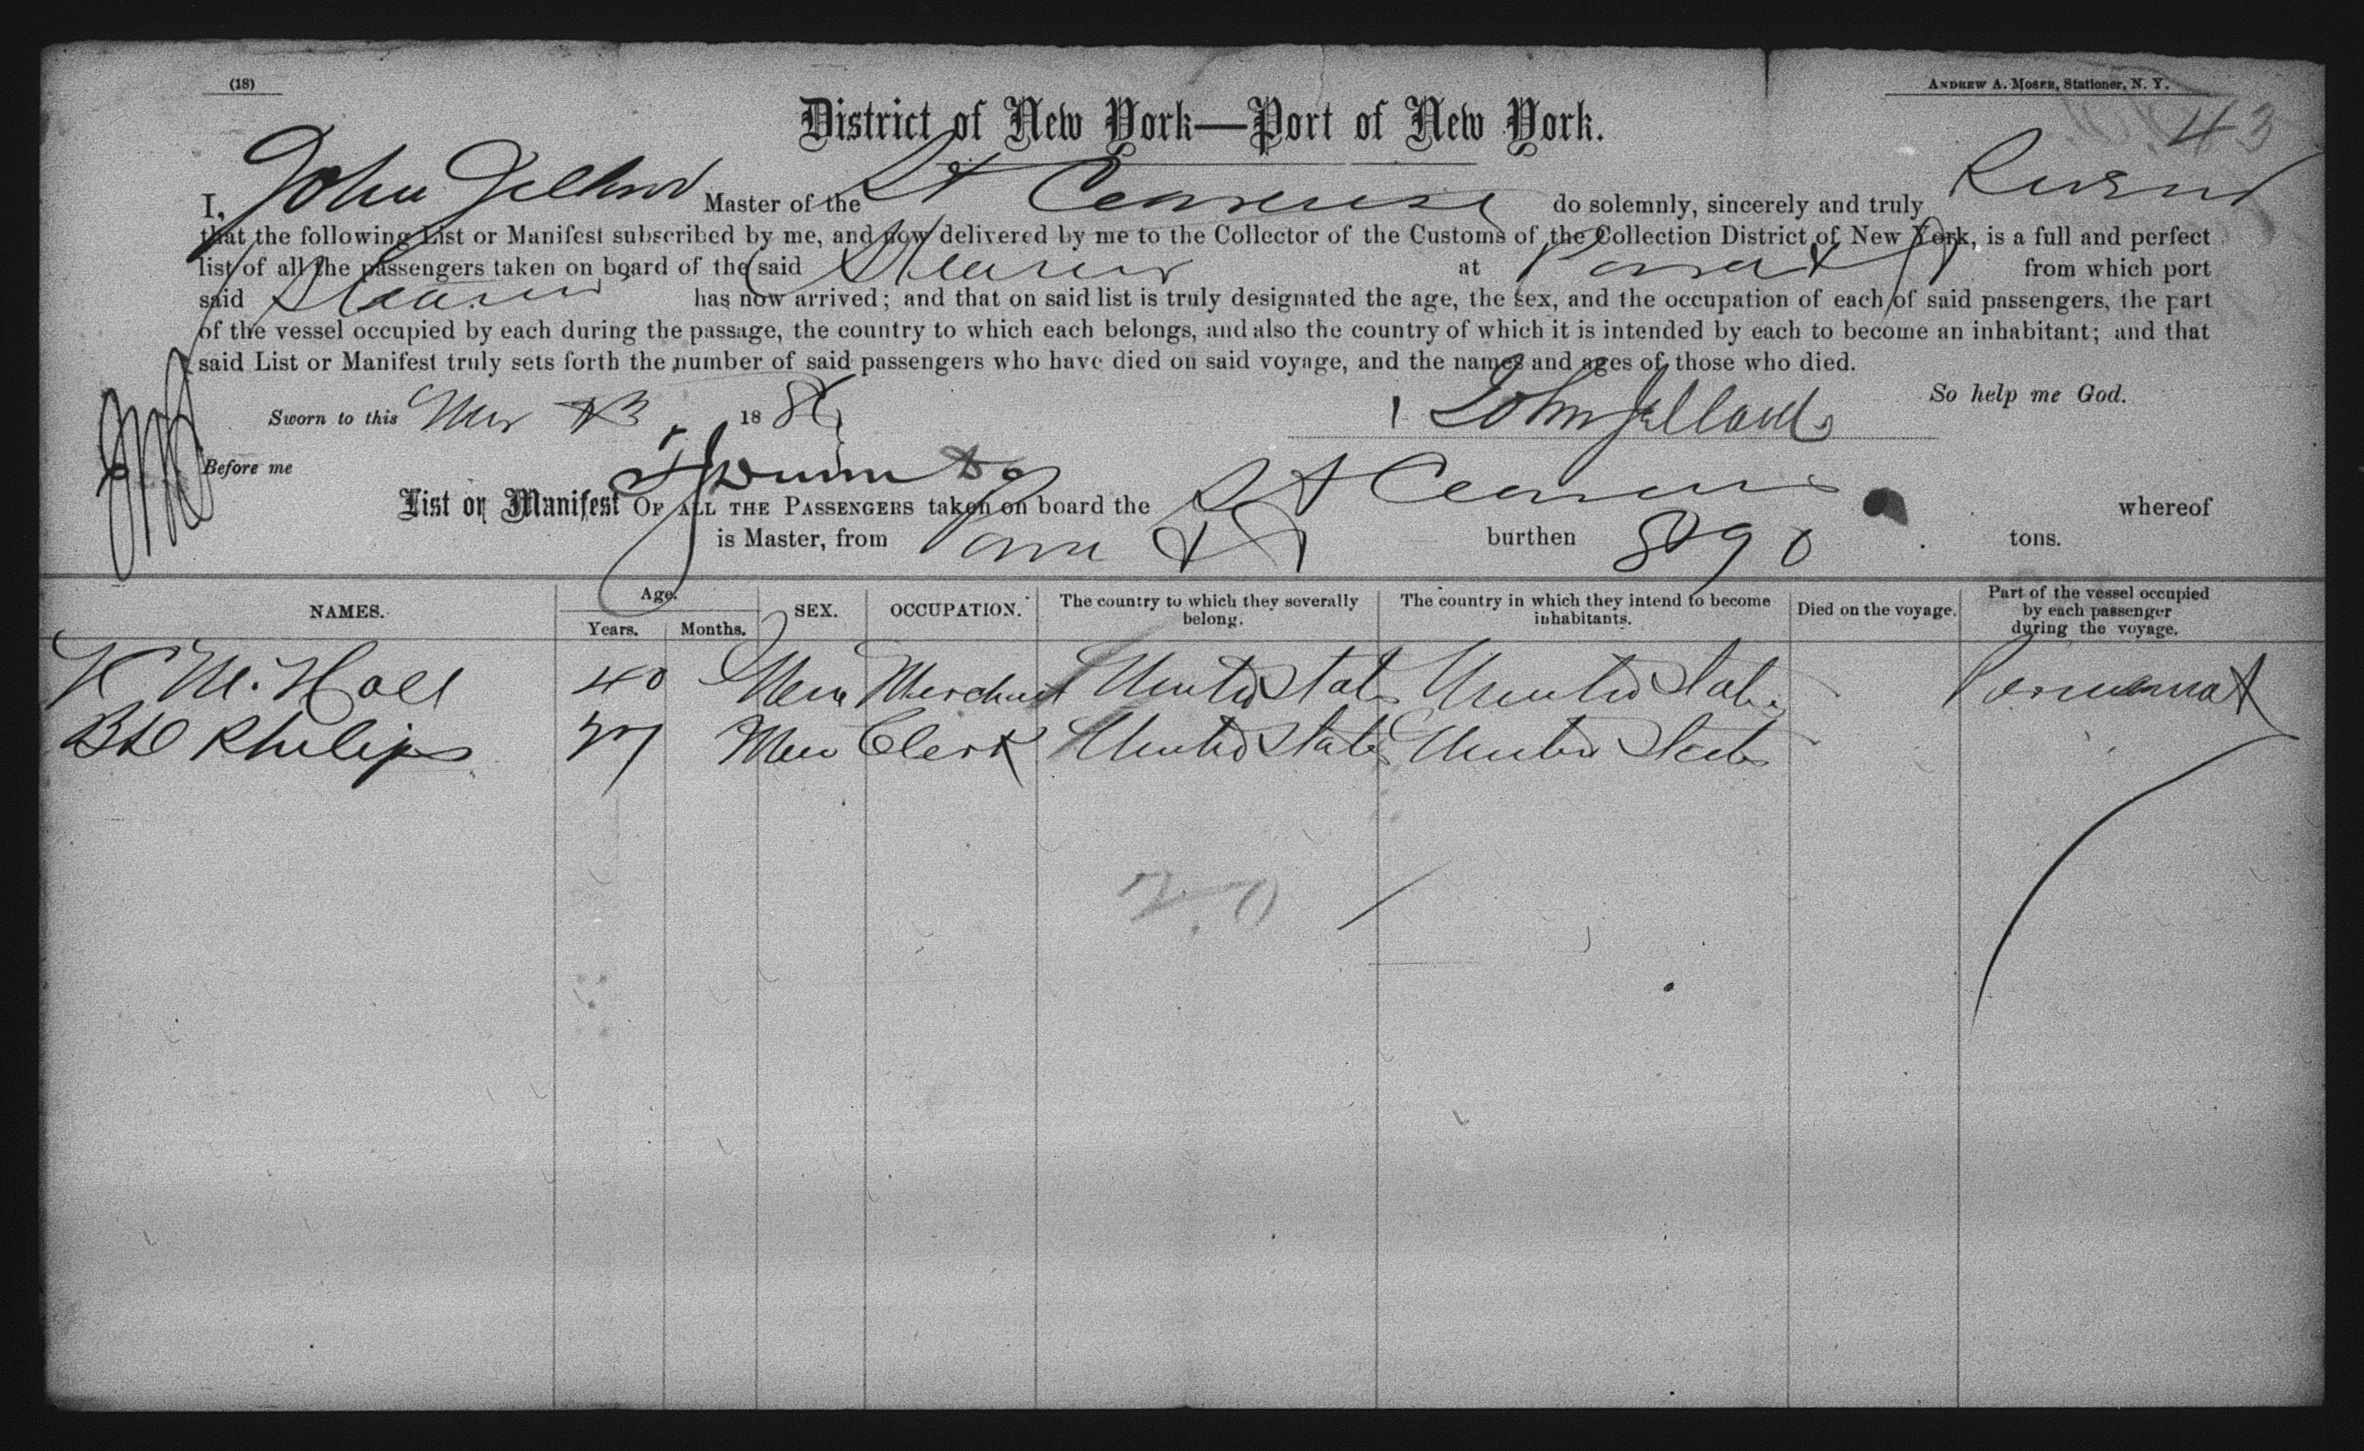 (18)
ANDREW A. MOSER, Stationer, N. Y.
43
District of New York—Port of New York.
I, John Jellard Master of the St do solemnly, sincerely and truly
that the following List or Manifest subscribed by me, and now delivered by me to the Collector of the Customs of the Collection District of New York, is a full and perfect
list of all the passengers taken on board of the said Steamer at Para from which port
said Steamer has now arrived; and that on said list is truly designated the age, the sex, and the occupation of each of said passengers, the part
of the vessel occupied by each during the passage, the country to which each belongs, and also the country of which it is intended by each to become an inhabitant; and that
said List or Manifest truly sets forth the number of said passengers who have died on said voyage, and the names and ages of those who died.
So help me God.
Sworn to this 18 John Jellard
Before me
List or Manifest OF ALL THE PASSENGERS taken on board the St whereof
is Master, from Para burthen tons.
NAMES. Age. Years. Months. SEX. OCCUPATION. The country to which they severally belong. The country in which they intend to become inhabitants. Died on the voyage. Part of the vessel occupied by each passenger during the voyage.
K M. Hall 40 Men Merchant United States United States
Philips 27 Men Clerk United States United States
20